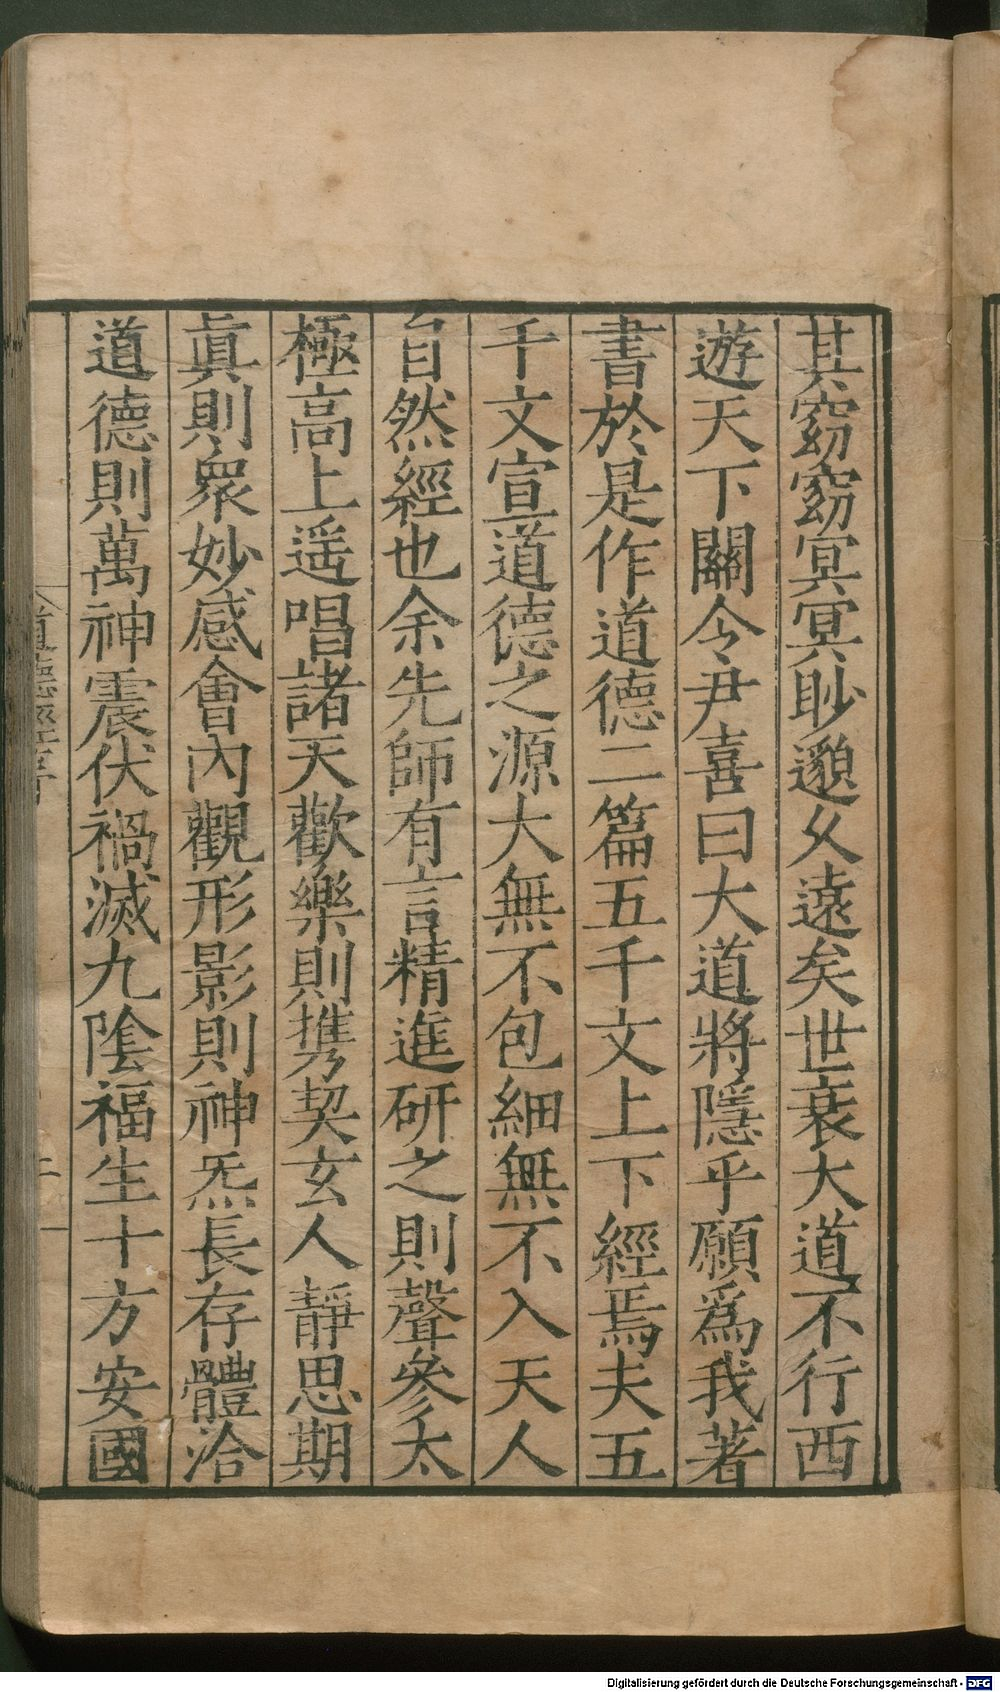 其窈窈冥冥眇邈久遠矣世衰大道不行西
遊天下關令尹喜曰大道將隱乎願爲我著
書於是作道德二篇五千文上下經焉夫五
千文宣道德之源大無不包細無不入天人
自然經也余先師有言精進研之則聲參太
極高上遥唱諸天歡樂則携契玄人靜思期
眞則衆妙感會內觀形影則神炁長存體洽
道德則萬神震伏禍滅九陰福生十方安國
道德經序
二
Digitalisierung gefördert durch die Deutsche Forschungsgemeinschaft - DFG